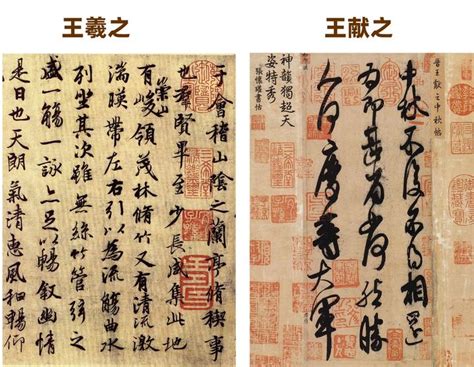 王羲之
王献之
于會稽山陰之蘭亭脩稧事
也羣賢畢至少長咸集此地
崇山
有峻領茂林脩竹又有清流激
湍暎帶左右引以為流觴曲水
列坐其次雖無絲竹管弦之
盛一觴一詠亦足以暢敘幽情
是日也天朗氣清惠風和暢仰
晉王獻之中秋帖
中秋不復不得相還
為即甚省如何然勝
人何慶等大軍
神韻獨超天
姿特秀
張懷瓘書估